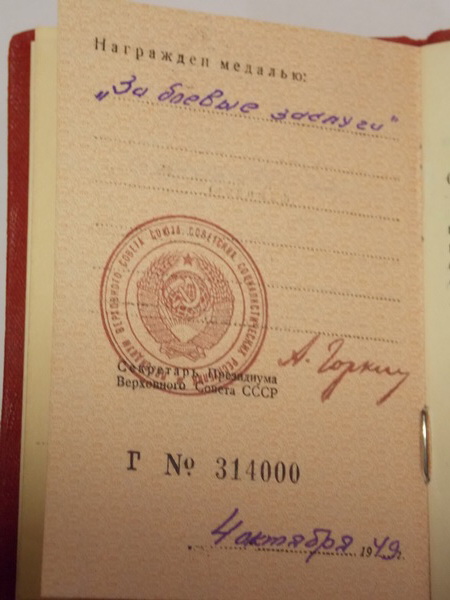 Награжден медалью:
„За боевые заслуги"
ПРЕЗИДИУМ ВЕРХОВНОГО СОВЕТА СОЮЗА СОВЕТСКИХ СОЦИАЛИСТИЧЕСКИХ
Секретарь Президиума
Верховного Совета СССР
А. Горкин
Г № 314000
4 октября 1949.